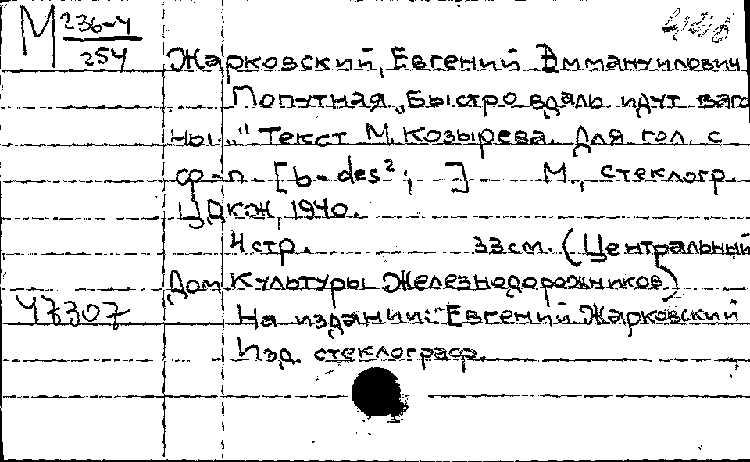 М 236-4
254
Жарковский, Евгений Эммануилович
Попутная „Быстро вдаль идут ваго
ны..." Текст М. Козырева. Для гол. с
ф-п. [b-des²; ] М., стеклогр.
ЦДКЖ, 1940.
4 стр. 33 см. (Центральный
Дом Культуры Железнодорожников)
47307 На издании: "Евгений Жарковский
Изд. стеклограф.